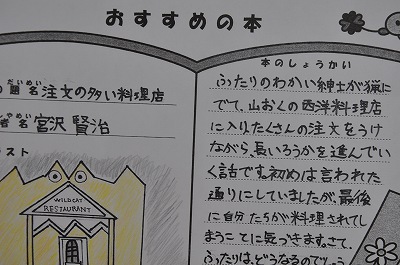 おすすめの本
だいめい
の題名 注文の多い料理店
やめい
者名 宮沢 賢治
スト
WILDCAT
RESTAURANT
本のしょうかい
ふたりのわかい紳士が猟に
でて、山おくの西洋料理店
に入り、たくさんの注文をうけ
ながら、長いろうかを進んでい
く話です。初めは言われた
通りにしていましたが、最後
に自分たちが料理されてし
まうことに気づきます。さて、
ふたりは、どうなるのでしょう